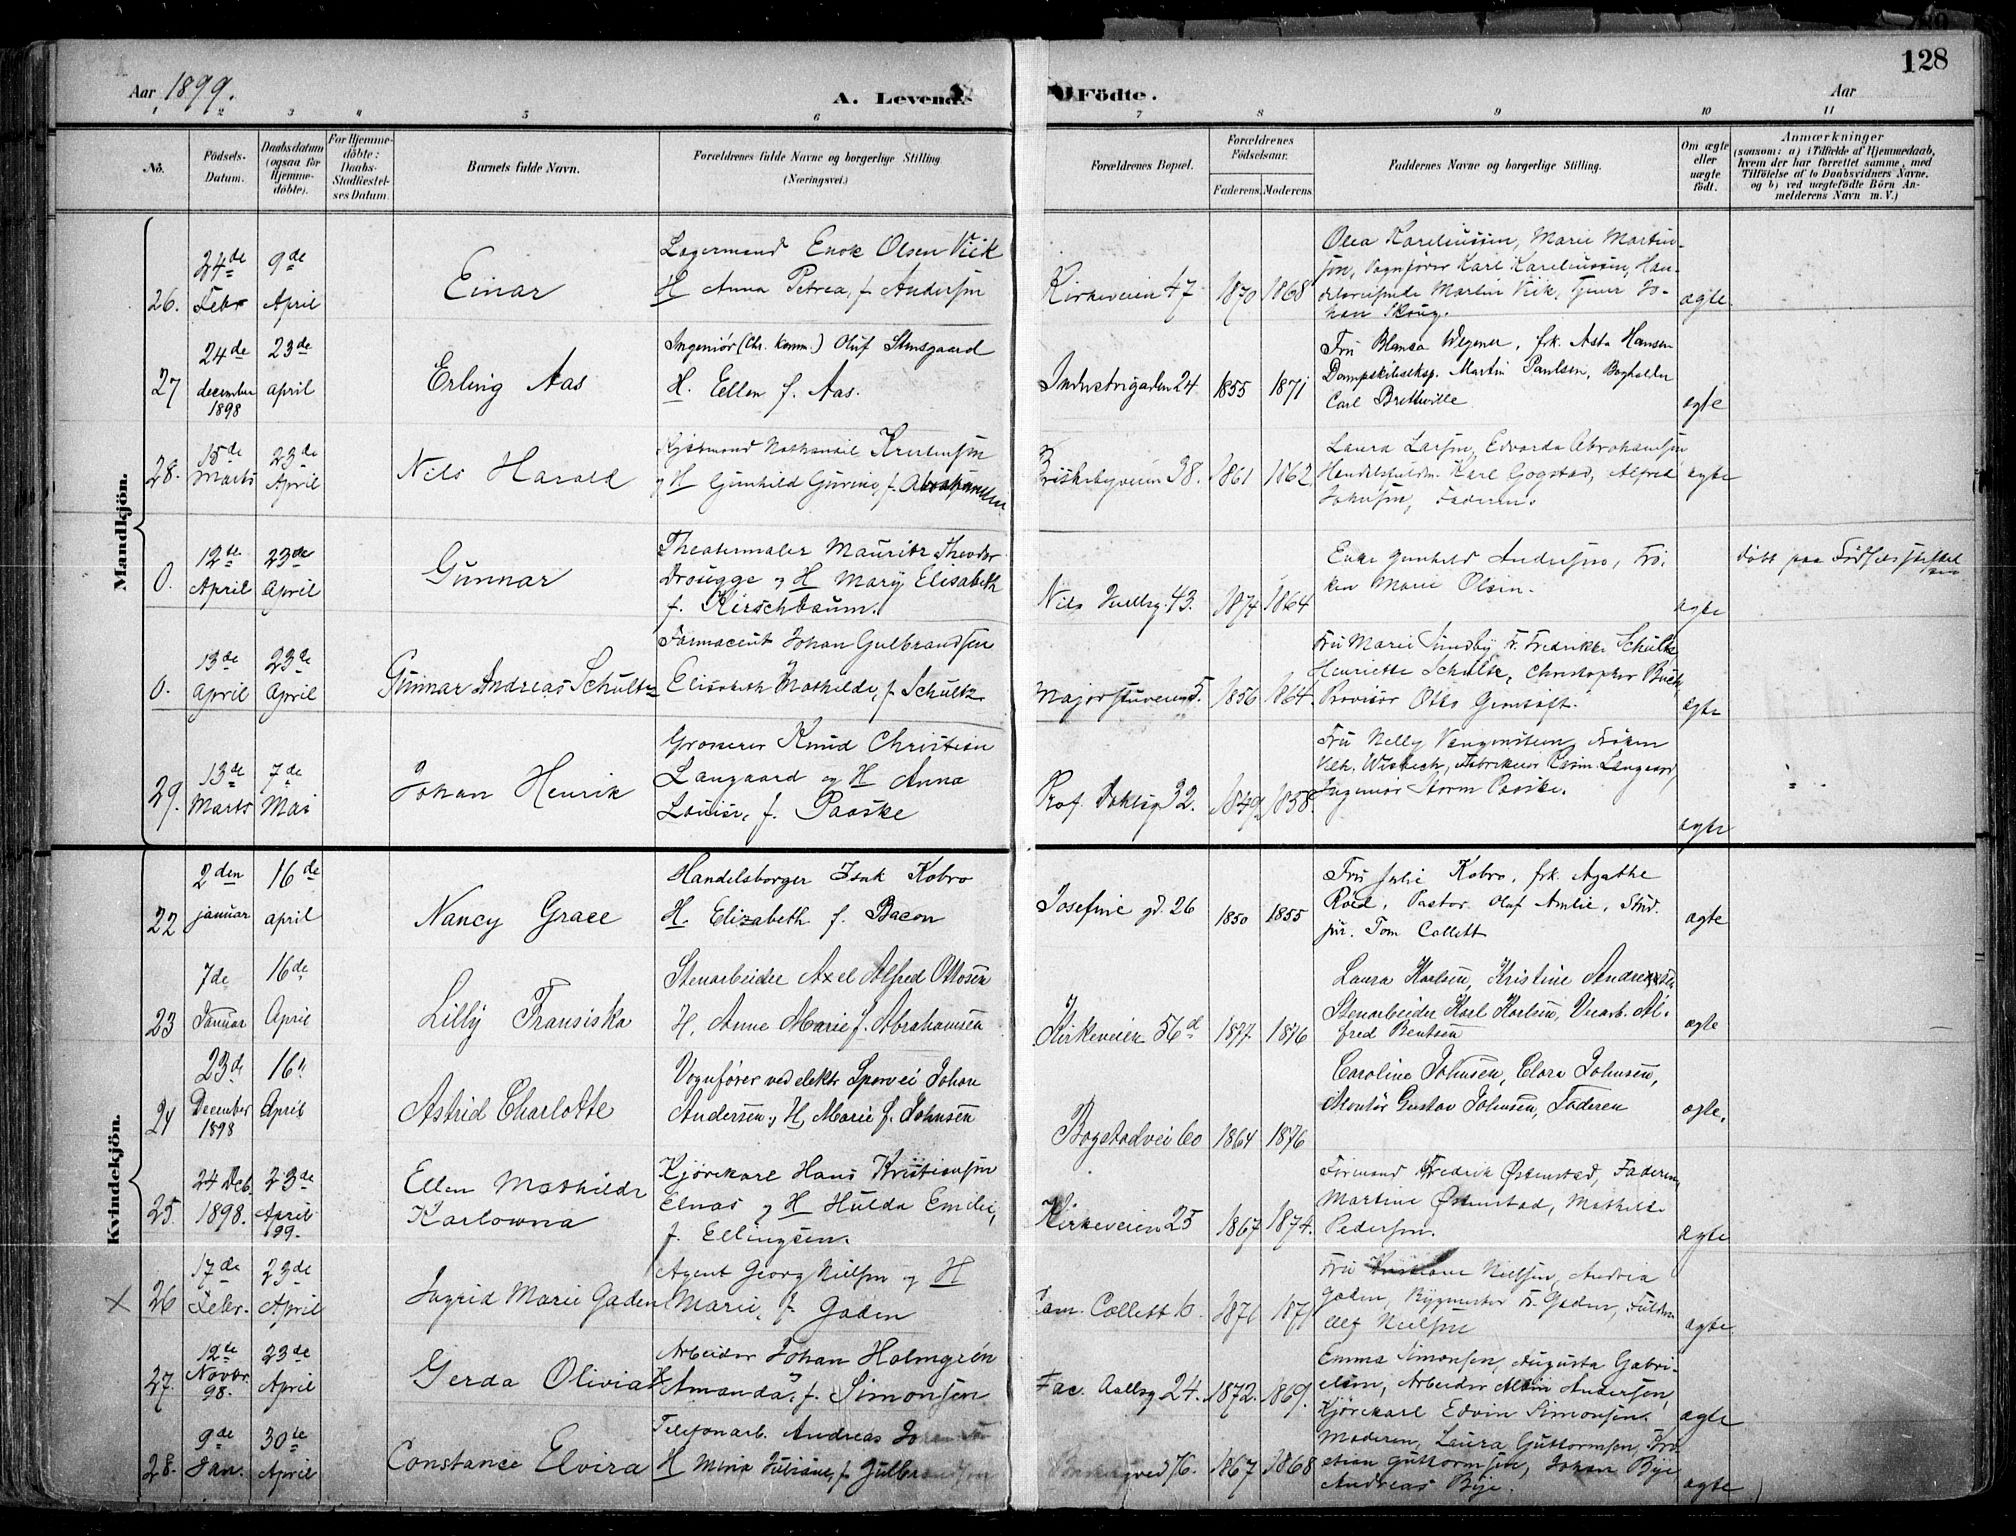 128
Aar 1899.
A. Levende Födte.
Aar
1 2 3 4 5 6 7 8 9 10 11
No.
Födsels-Datum.
Daabsdatum (ogsaa för Hjemme-döbte).
For Hjemme-döbte: Daabs-Stadfæstel-ses Datum.
Barnets fulde Navn.
Forældrenes fulde Navne og borgerlige Stilling. (Næringsvei.)
Forældrenes Bopæl.
Forældrenes Födselsaar.
Faderens. Moderens.
Faddernes Navne og borgerlige Stilling.
Om ægte eller uægte födt.
Anmærkninger
(saasom: a) i Tilfælde af Hjemmedaab,
hvem der har forrettet samme, med
Tilföielse af to Daabsvidners Navne,
og b) ved uægtefödte Börn An-
melderens Navn m. V.)
Mandkjön.
26. 24de Febr 9de April
Einar
Lagermand Enok Olsen Vik
H Anna Petrea, f. Andersen
Kirkeveien 47 1870 1868
Olea Kareliussen, Marie Martin-
sen, Vognfører Karl Kareliussen, Han-
delsreisende Martin Vik, Tjener Jo-
han Skoug.
ægte.
27 24de december 1898 23de april
Erling Aas
Ingeniør (Chr. Komm.) Oluf Stensgaard
H. Ellen f. Aas.
Industrigaden 24 1855 1871
Fru Blanca Wegener, frk. Asta Hansen
Dampskibseksp. Martin Paulsen, Bogholder
Carl Brettville
ægte
28. 15de Marts 23de April
Nils Harald
Nathanail
H Gunhild f. Abrahamsen
Briskebyveien 38. 1861 1862
Laura Larsen, Edvarda Abrahamsen
Karl Gogstad, Alfred
Johnsen, Faderen.
ægte
0. 12te April 23de April
Gunnar
Theatermaler Mauritz Theodor
Drougge og H Mary Elisabeth
f. Kirschbaum.
Nils Juelsg. 43. 1874 1864
Enke Gunhild Andersen, Frö-
ken Marie Olsen.
ægte
døbt paa Fødselsstiftel
sen
0. 13de April 23de April
Gunnar Andreas Schultz
Farmaceut Johan Gulbrandsen
Elisabeth Mathilde, f. Schultz
Majorstuveien 5. 1856 1864.
Fru Marie Sundby, Fr. Fredrikke Schultz
Henriette Schultz, Christopher
Provisor Otto
ægte
29. 13de Marts 7de Mai
Johan Henrik
Grosserer Knud Christian
Langaard og H Anna
Louise, f. Paaske
Prof. Dahlsg 32. 1849. 1858.
Fru Nelly Vangensteen, Frøken
Vilh. Wisbech, Fabrikeier Langaard,
Ingeniør Storm Paaske.
ægte
Kvindekjön.
22 2den januar 16de april
Nancy Grace
Handelsborger Isak Kobro
H. Elizabeth f. Bacon
Josefine gd. 26 1850 1855
Fru Julie Kobro, frk. Agathe
Röed, Pastor Olaf Amlie, Stud.
jur. Tom Collett
ægte
23 7de Januar 16de April
Lilly Fransiska
Stenarbeider Axel Alfred Ottosen
H. Anne Marie f. Abrahamsen
Kirkeveien 56d 1877 1876
Laura Karlsen, Kristine Andreassen
Stenarbeider Karl Karlsen, Al-
fred Bentsen
ægte
24 23de December 1898 16de April
Astrid Charlotte
Vognfører ved elektr Sporvei Johan
Andersen, H, Marie f. Johnsen
Bogstadvei 60 1864 1876
Caroline Johnsen, Clara Johnsen,
Montör Gustav Johnsen, Faderen
ægte.
25. 24 Deb. 1898. 23de April 99.
Ellen Mathilde
Karlowna
Kjørekarl Hans Kristiansen
Elnas og H Hulda Emilie,
f. Ellingsen.
Kirkeveien 25 1867 1874.
Formand Fredrik Østenstad, Faderen
Martine Østenstad, Mathilde
Pedersen.
ægte
X 26 17de Febr. 23de April
Ingrid Marie Gaden
Agent Georg Nielsen og H
Marie, f. Gaden
Cam. Collett 6. 1871 1871
Fru Nielsen, Andrea
Gaden, Bygmester Fr. Gaden,
Alf Nielsen
ægte.
27. 12te Novbr. 98. 23de April
Gerda Olivia
Arbeider Johan Holmgrén
H Amanda, f. Simonsen
Fac. Aallsg 24. 1872. 1869.
Emma Simonsen, Augusta Gabri-
elsen, Arbeider Andersen,
Kjørekarl Edvin Simonsen.
ægte
28. 9de Jan. 30te April
Constance Elvira
Telefonarb. Andreas
H Mina Juliane, f. Gulbrandsen
76. 1867 1868
Moderen, Laura Guttormsen, Kri-
stian Guttormsen, Johan Bye
Andreas Bye.
ægte